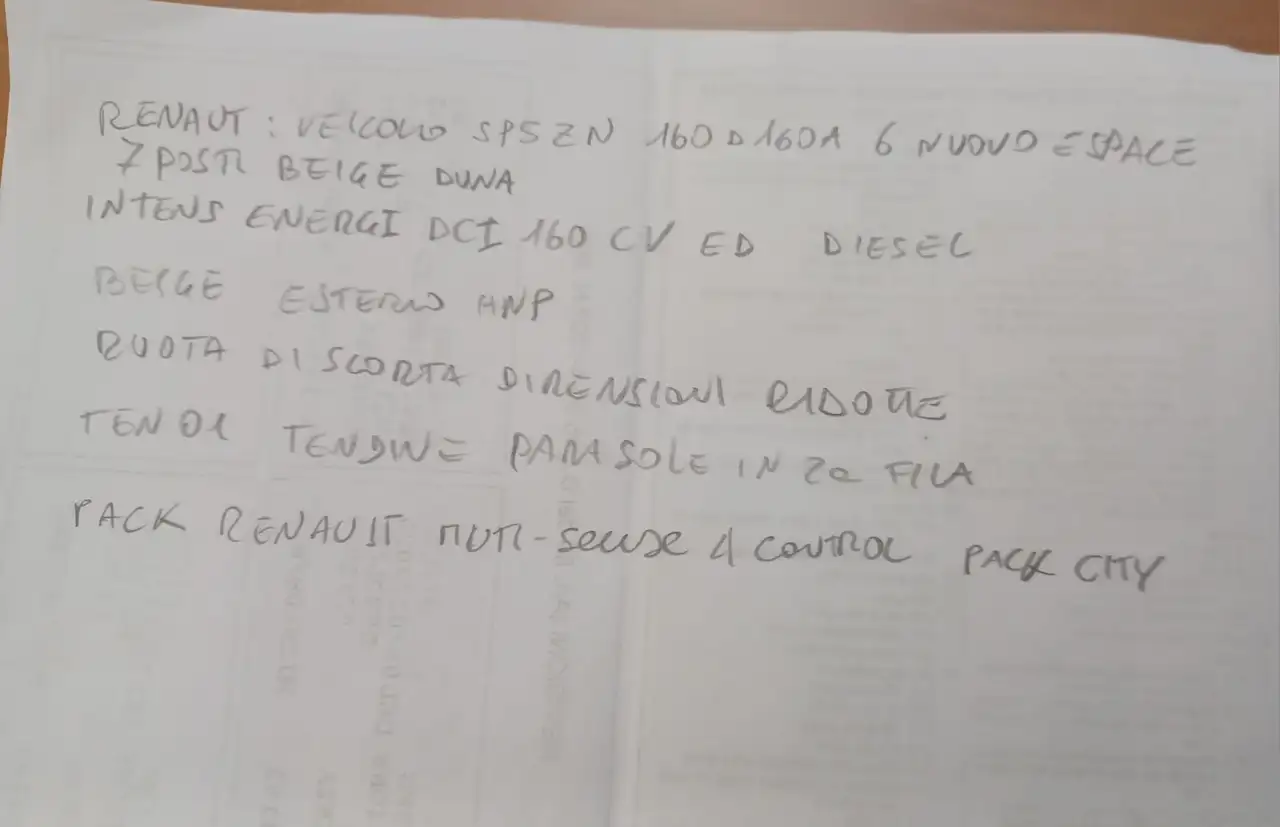 RENAUT: VEICOLO SP5 ZN 160D160A 6 NUOVO ESPACE
7 POSTI BEIGE DUNA
INTENS ENERGI DCI 160 CV ED DIESEL
BEIGE ESTERNO HNP
RUOTA DI SCORTA DIMENSIONI RIDOTTE
TENDI TENDINE PARASOLE IN 2a FILA
PACK RENAULT MUTI-SENSE 4 CONTROL PACK CITY